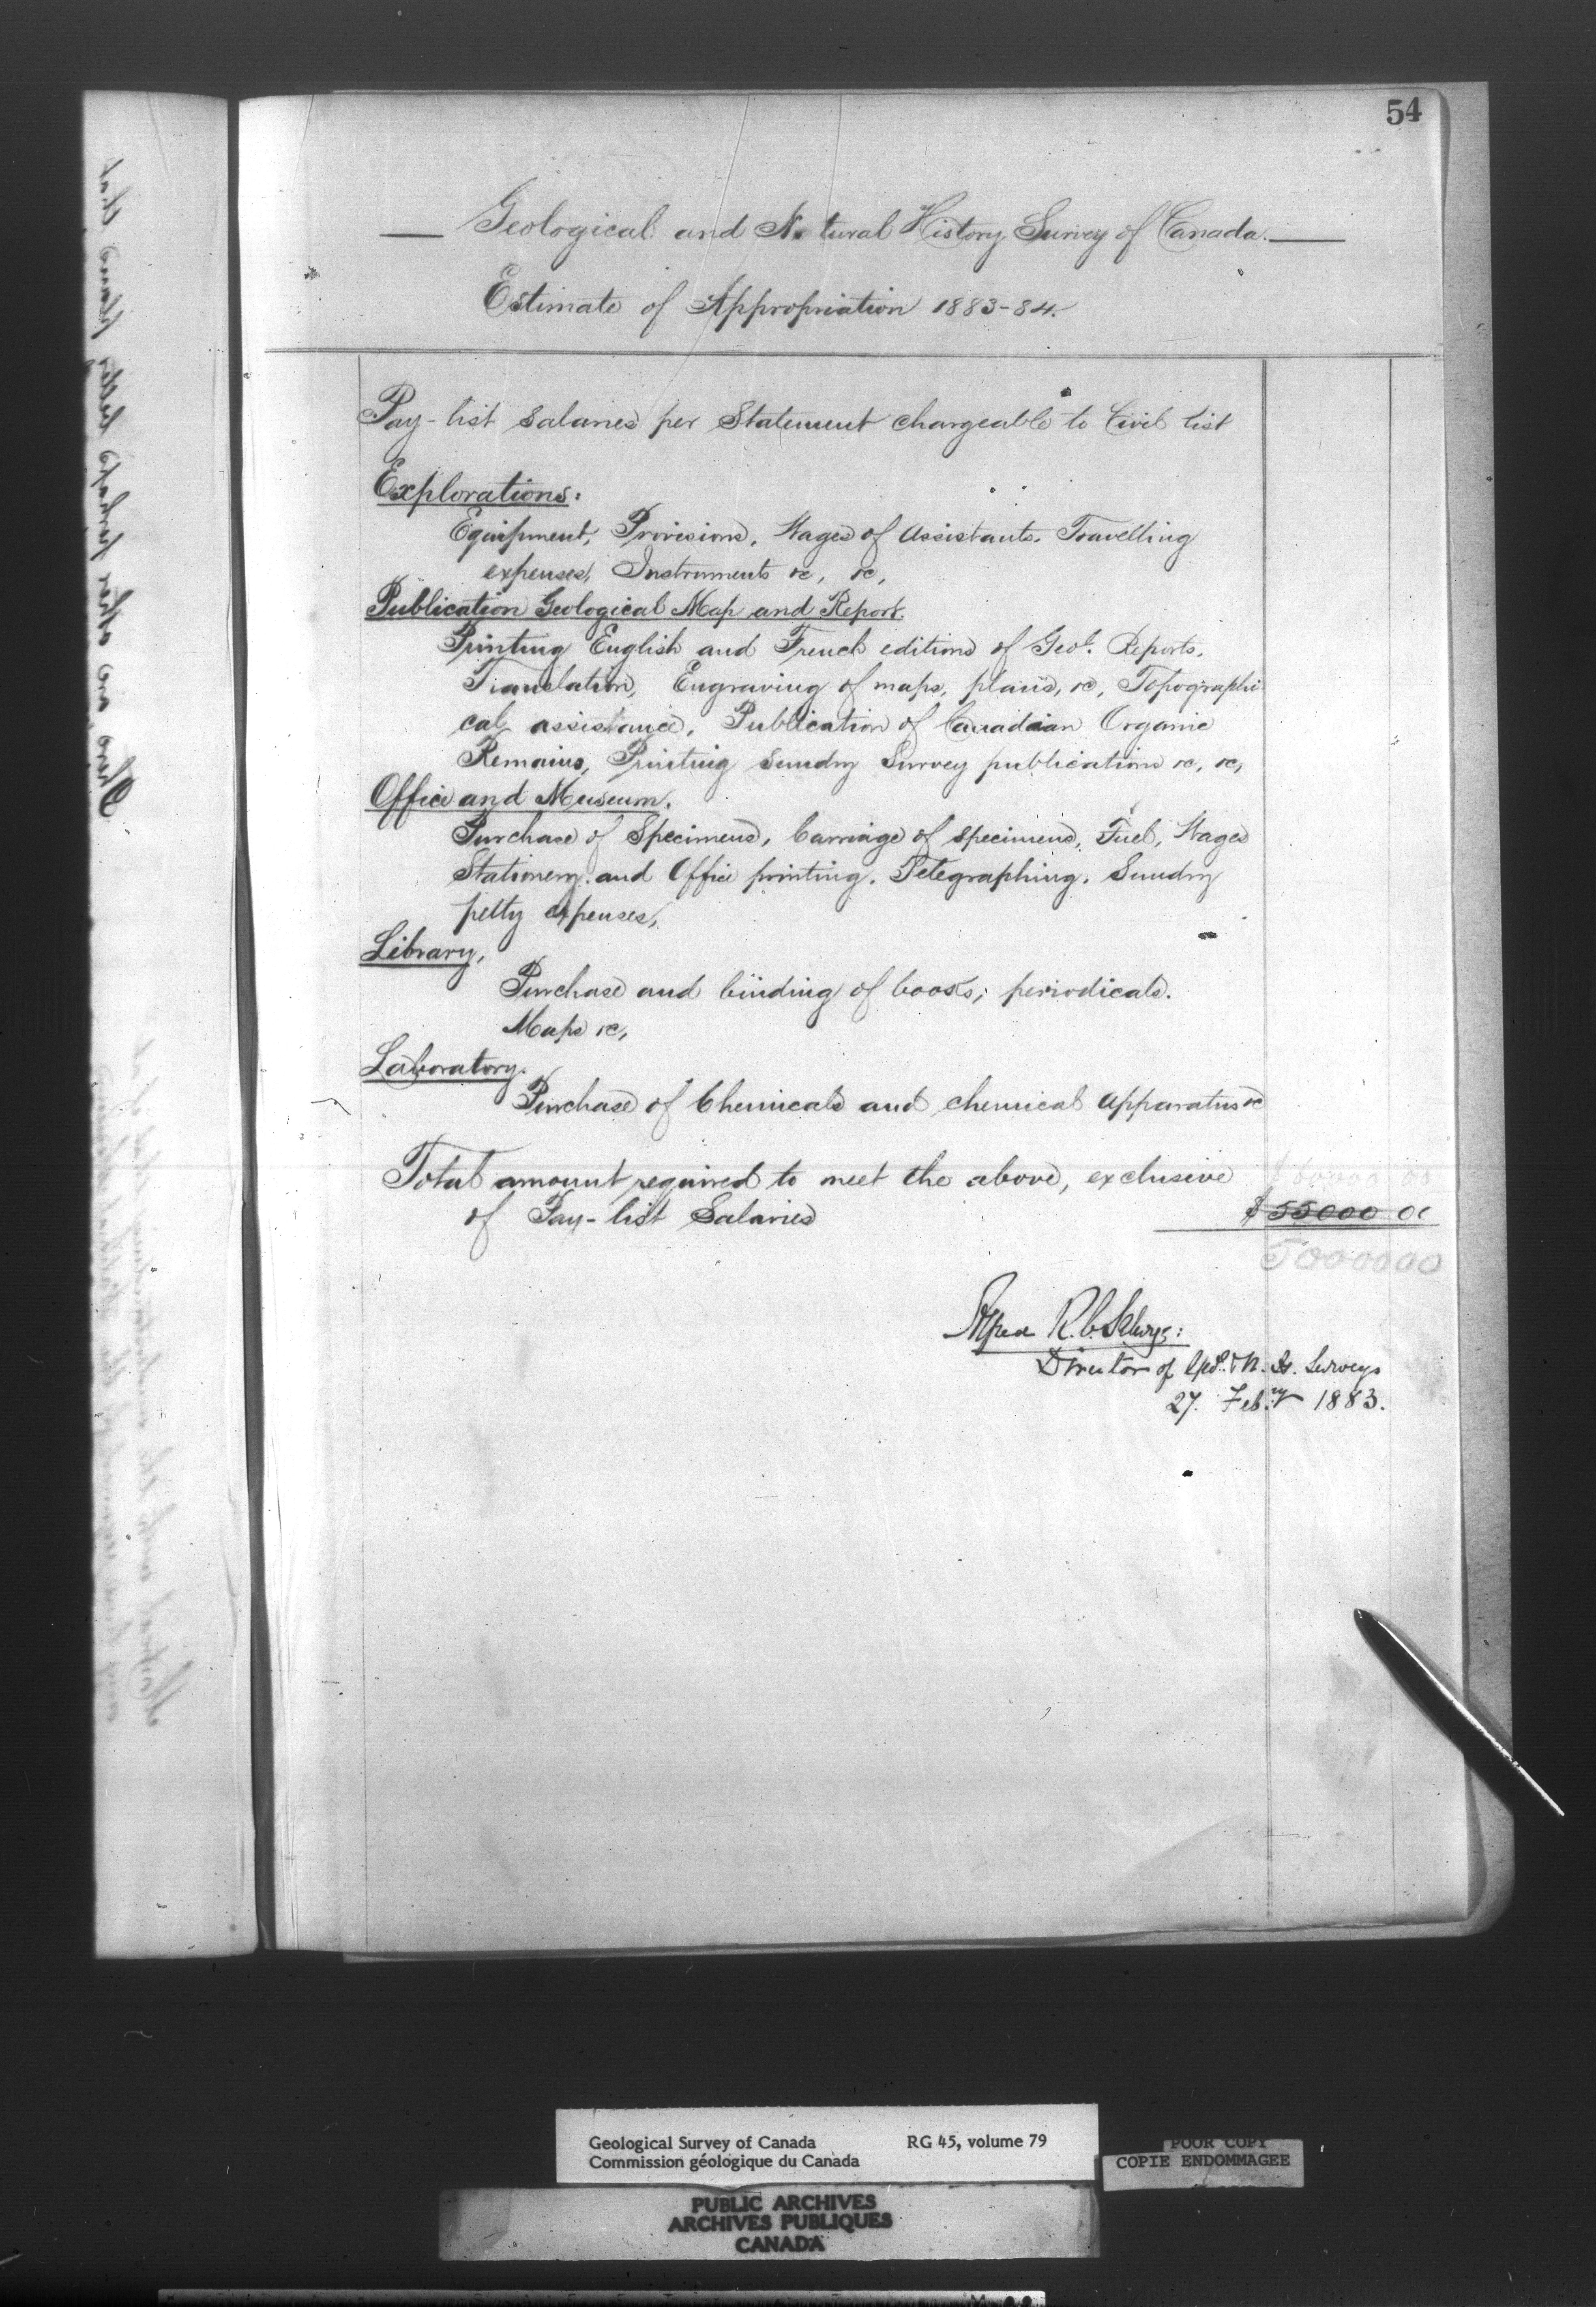 54
Geological and Natural History Survey of Canada.
Estimate of Appropriation 1883-84.
Pay-list Salaries per Statement chargeable to Civil list
Explorations:
Equipment, Provisions, Wages of Assistants. Travelling
expenses, Instruments &c, &c,
Publication Geological Map and Report.
Printing English and French editions of Geol. Reports,
Translation, Engraving of maps, plans, &c, Topographi-
cal assistance, Publication of Canadian Organic
Remains, Printing Sundry Survey publications &c, &c,
Office and Museum.
Purchase of Specimens, Carriage of specimens, Fuel, Wages
Stationery and Office printing. Telegraphing. Sundry
petty expenses,
Library,
Purchase and binding of books; periodicals.
Maps &c,
Laboratory.
Purchase of Chemicals and chemical Apparatus &c
Total amount required to meet the above, exclusive $60000 00
of Pay-list Salaries $55000 00
50000 00
Alfred R. C. Selwyn:
Director of Geol. & N. H. Surveys
27. Febry 1883.
Geological Survey of Canada RG 45, volume 79
Commission géologique du Canada
POOR COPY
COPIE ENDOMMAGEE
PUBLIC ARCHIVES
ARCHIVES PUBLIQUES
CANADA